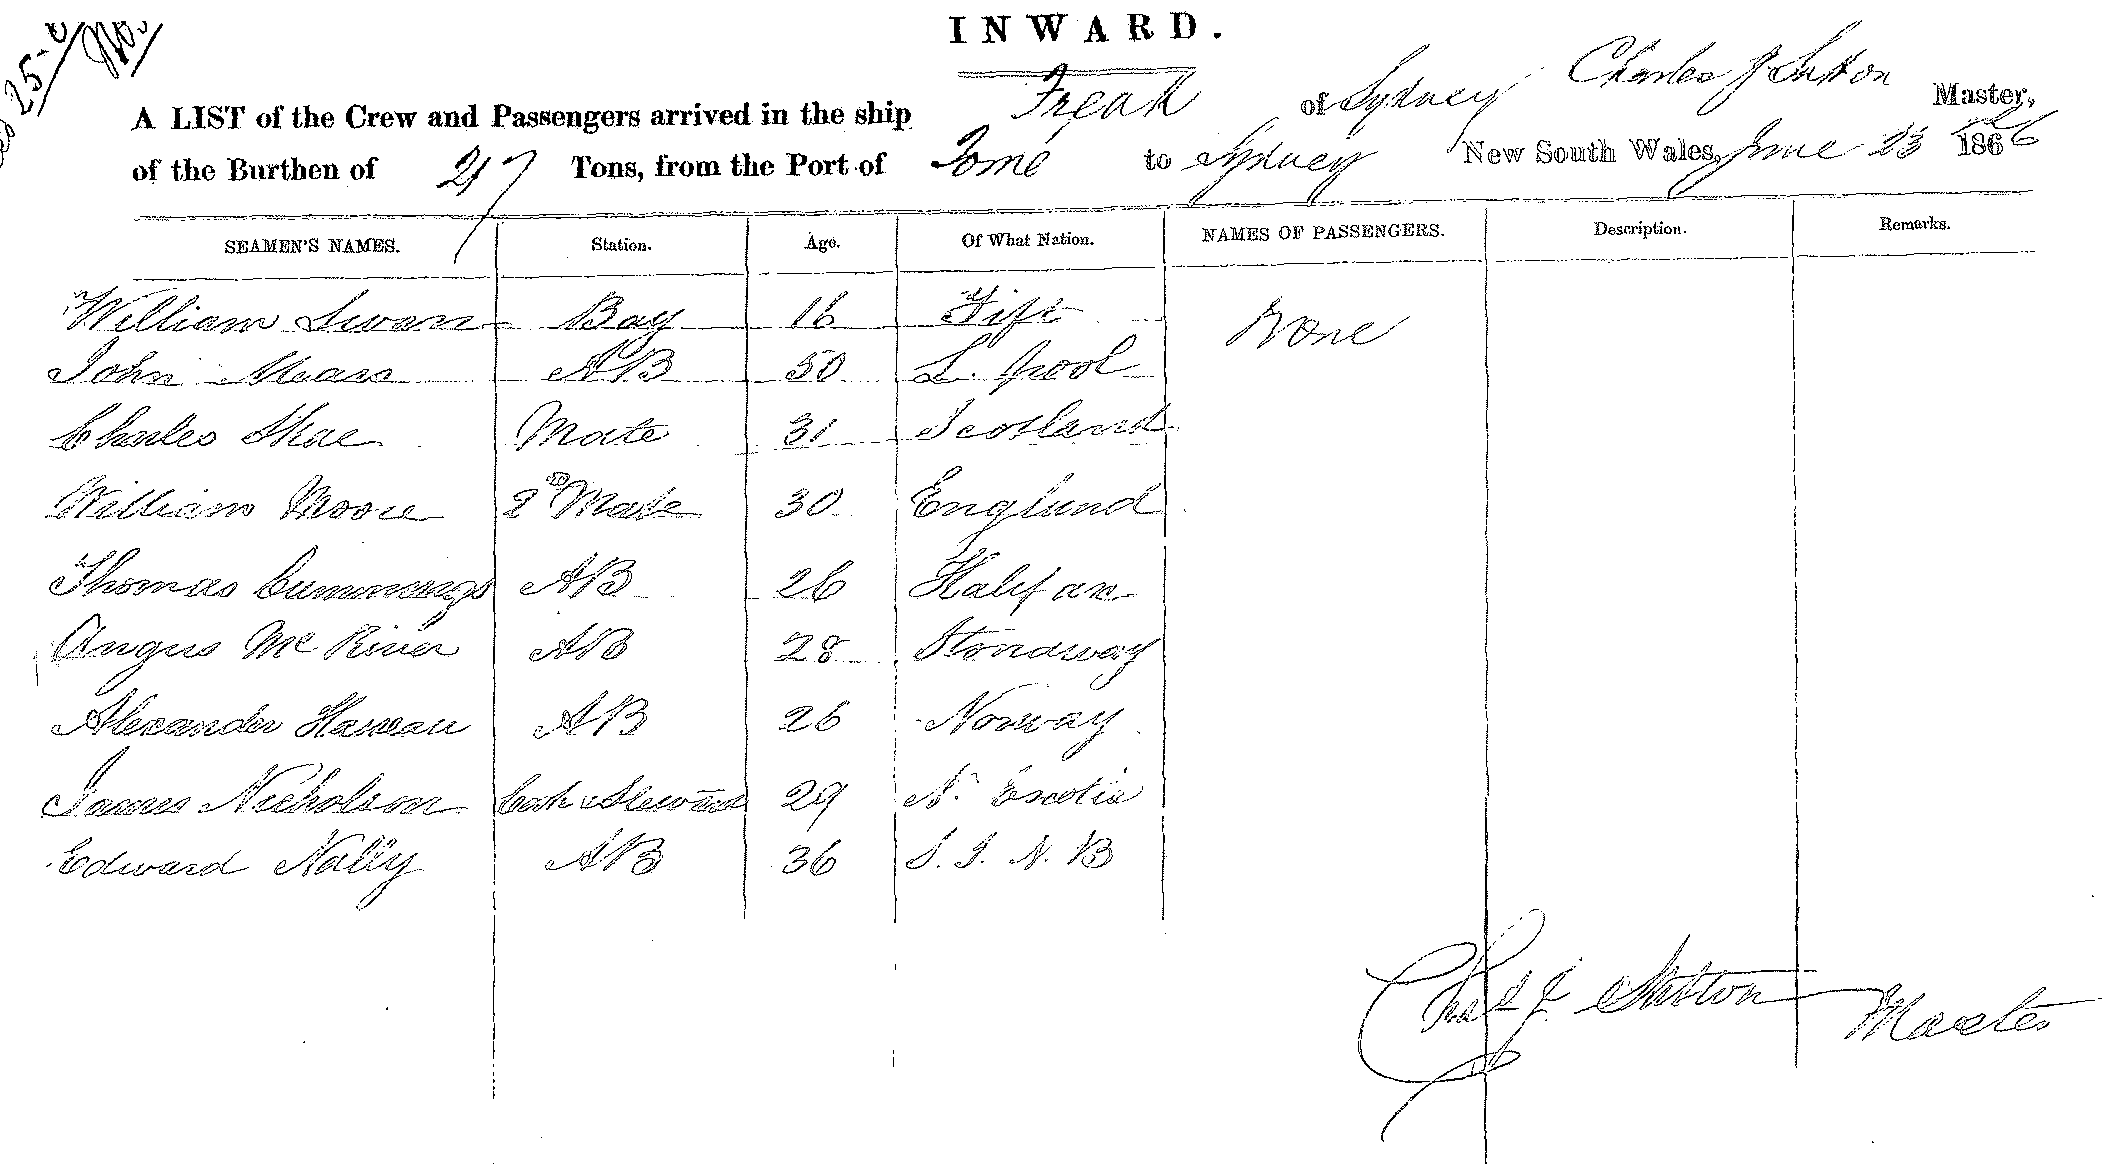 INWARD.
A LIST of the Crew and Passengers arrived in the ship Freak of Sydney Charles J Sutton Master,
of the Burthen of 217 Tons, from the Port of Tomé to Sydney New South Wales, June 23 1866
SEAMEN'S NAMES. Station. Age. Of What Nation. NAMES OF PASSENGERS. Description. Remarks.
William Swan Boy 16 Fife None
John Mears AB 50 L. pool
Charles Shae Mate 31 Scotland
William Moore 2nd Mate 30 England
Thomas Cummings AB 26 Halifax
Angus McRiver AB 28 Stonoway
Alexander AB 26 Norway
James Nicholson Cook & Steward 29 N. Escotia
Edward Nally AB 36 S. J. N. B
Chas J Sutton Master